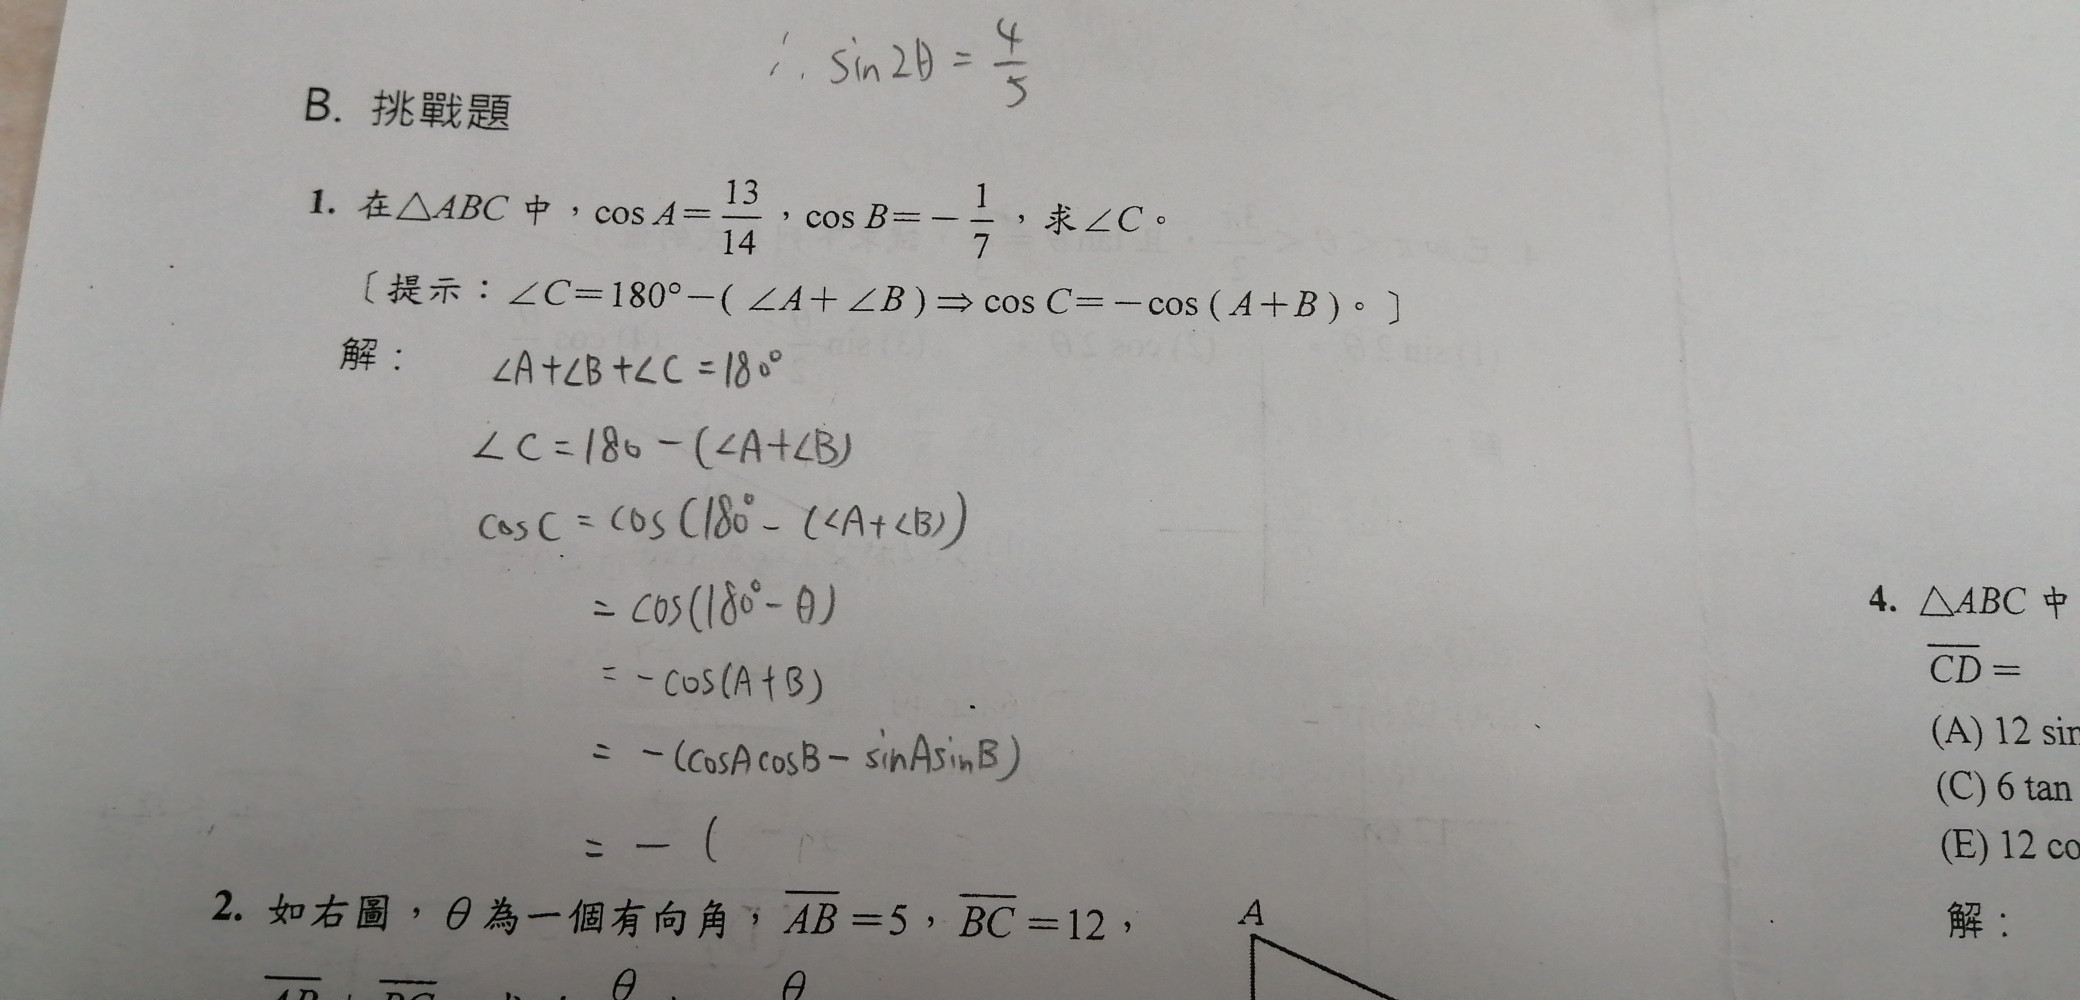 ∴ sin2θ = 4/5
B. 挑戰題
1. 在△ABC 中，cos A=13/14，cos B=-1/7，求∠C。
〔提示：∠C=180°-(∠A+∠B)⇒cos C=-cos(A+B)。〕
解：
∠A+∠B+∠C=180°
∠C=180-(∠A+∠B)
cosC = cos(180°-(∠A+∠B))
= cos(180°-θ)
= -cos(A+B)
= -(cosAcosB-sinAsinB)
= -(
2. 如右圖，θ為一個有向角，AB=5，BC=12，
A
θ
θ
4. △ABC 中
CD=
(A) 12 sin
(C) 6 tan
(E) 12 co
解：